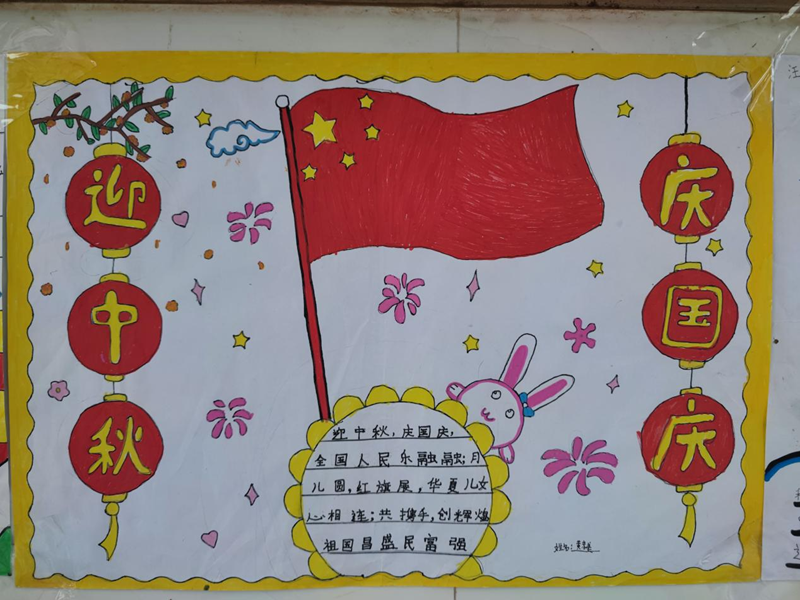 迎中秋
庆国庆
迎中秋,庆国庆,
全国人民乐融融;月
儿圆,红旗展,华夏儿女
心相连;共携手,创辉煌
祖国昌盛民富强